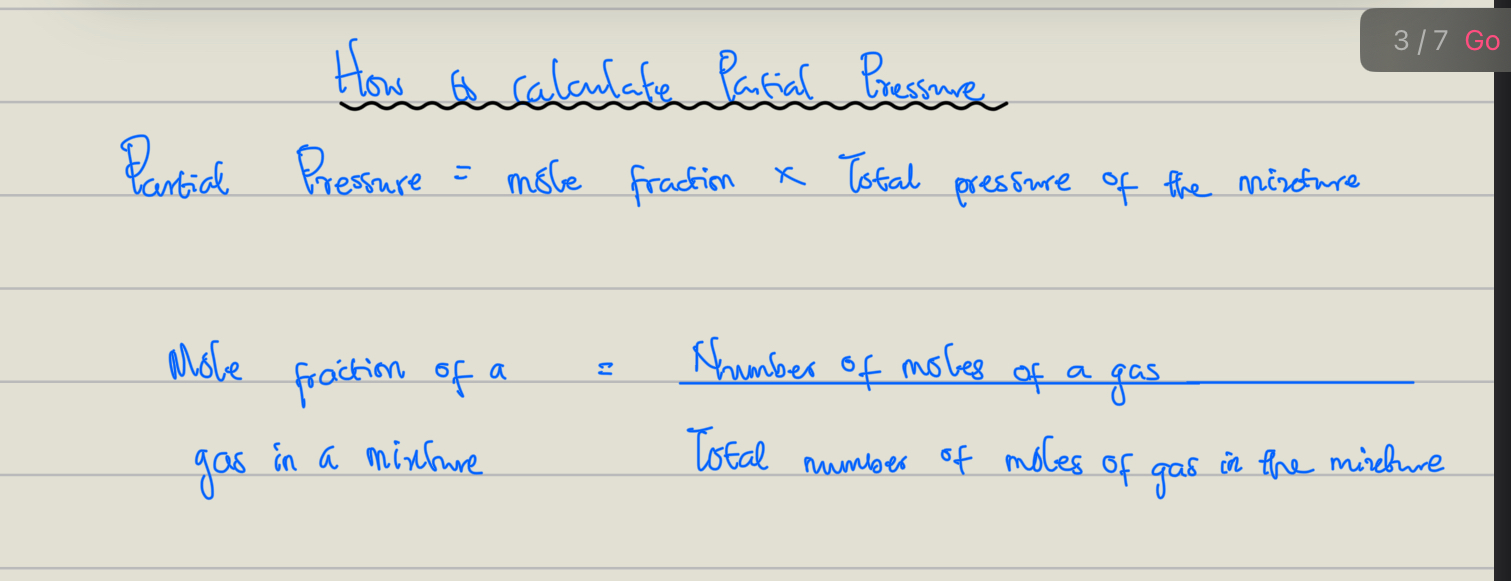 3 / 7 Go
How to calculate Partial Pressure
Partial Pressure = mole fraction × Total pressure of the mixture
Mole fraction of a = Number of moles of a gas
gas in a mixture Total number of moles of gas in the mixture